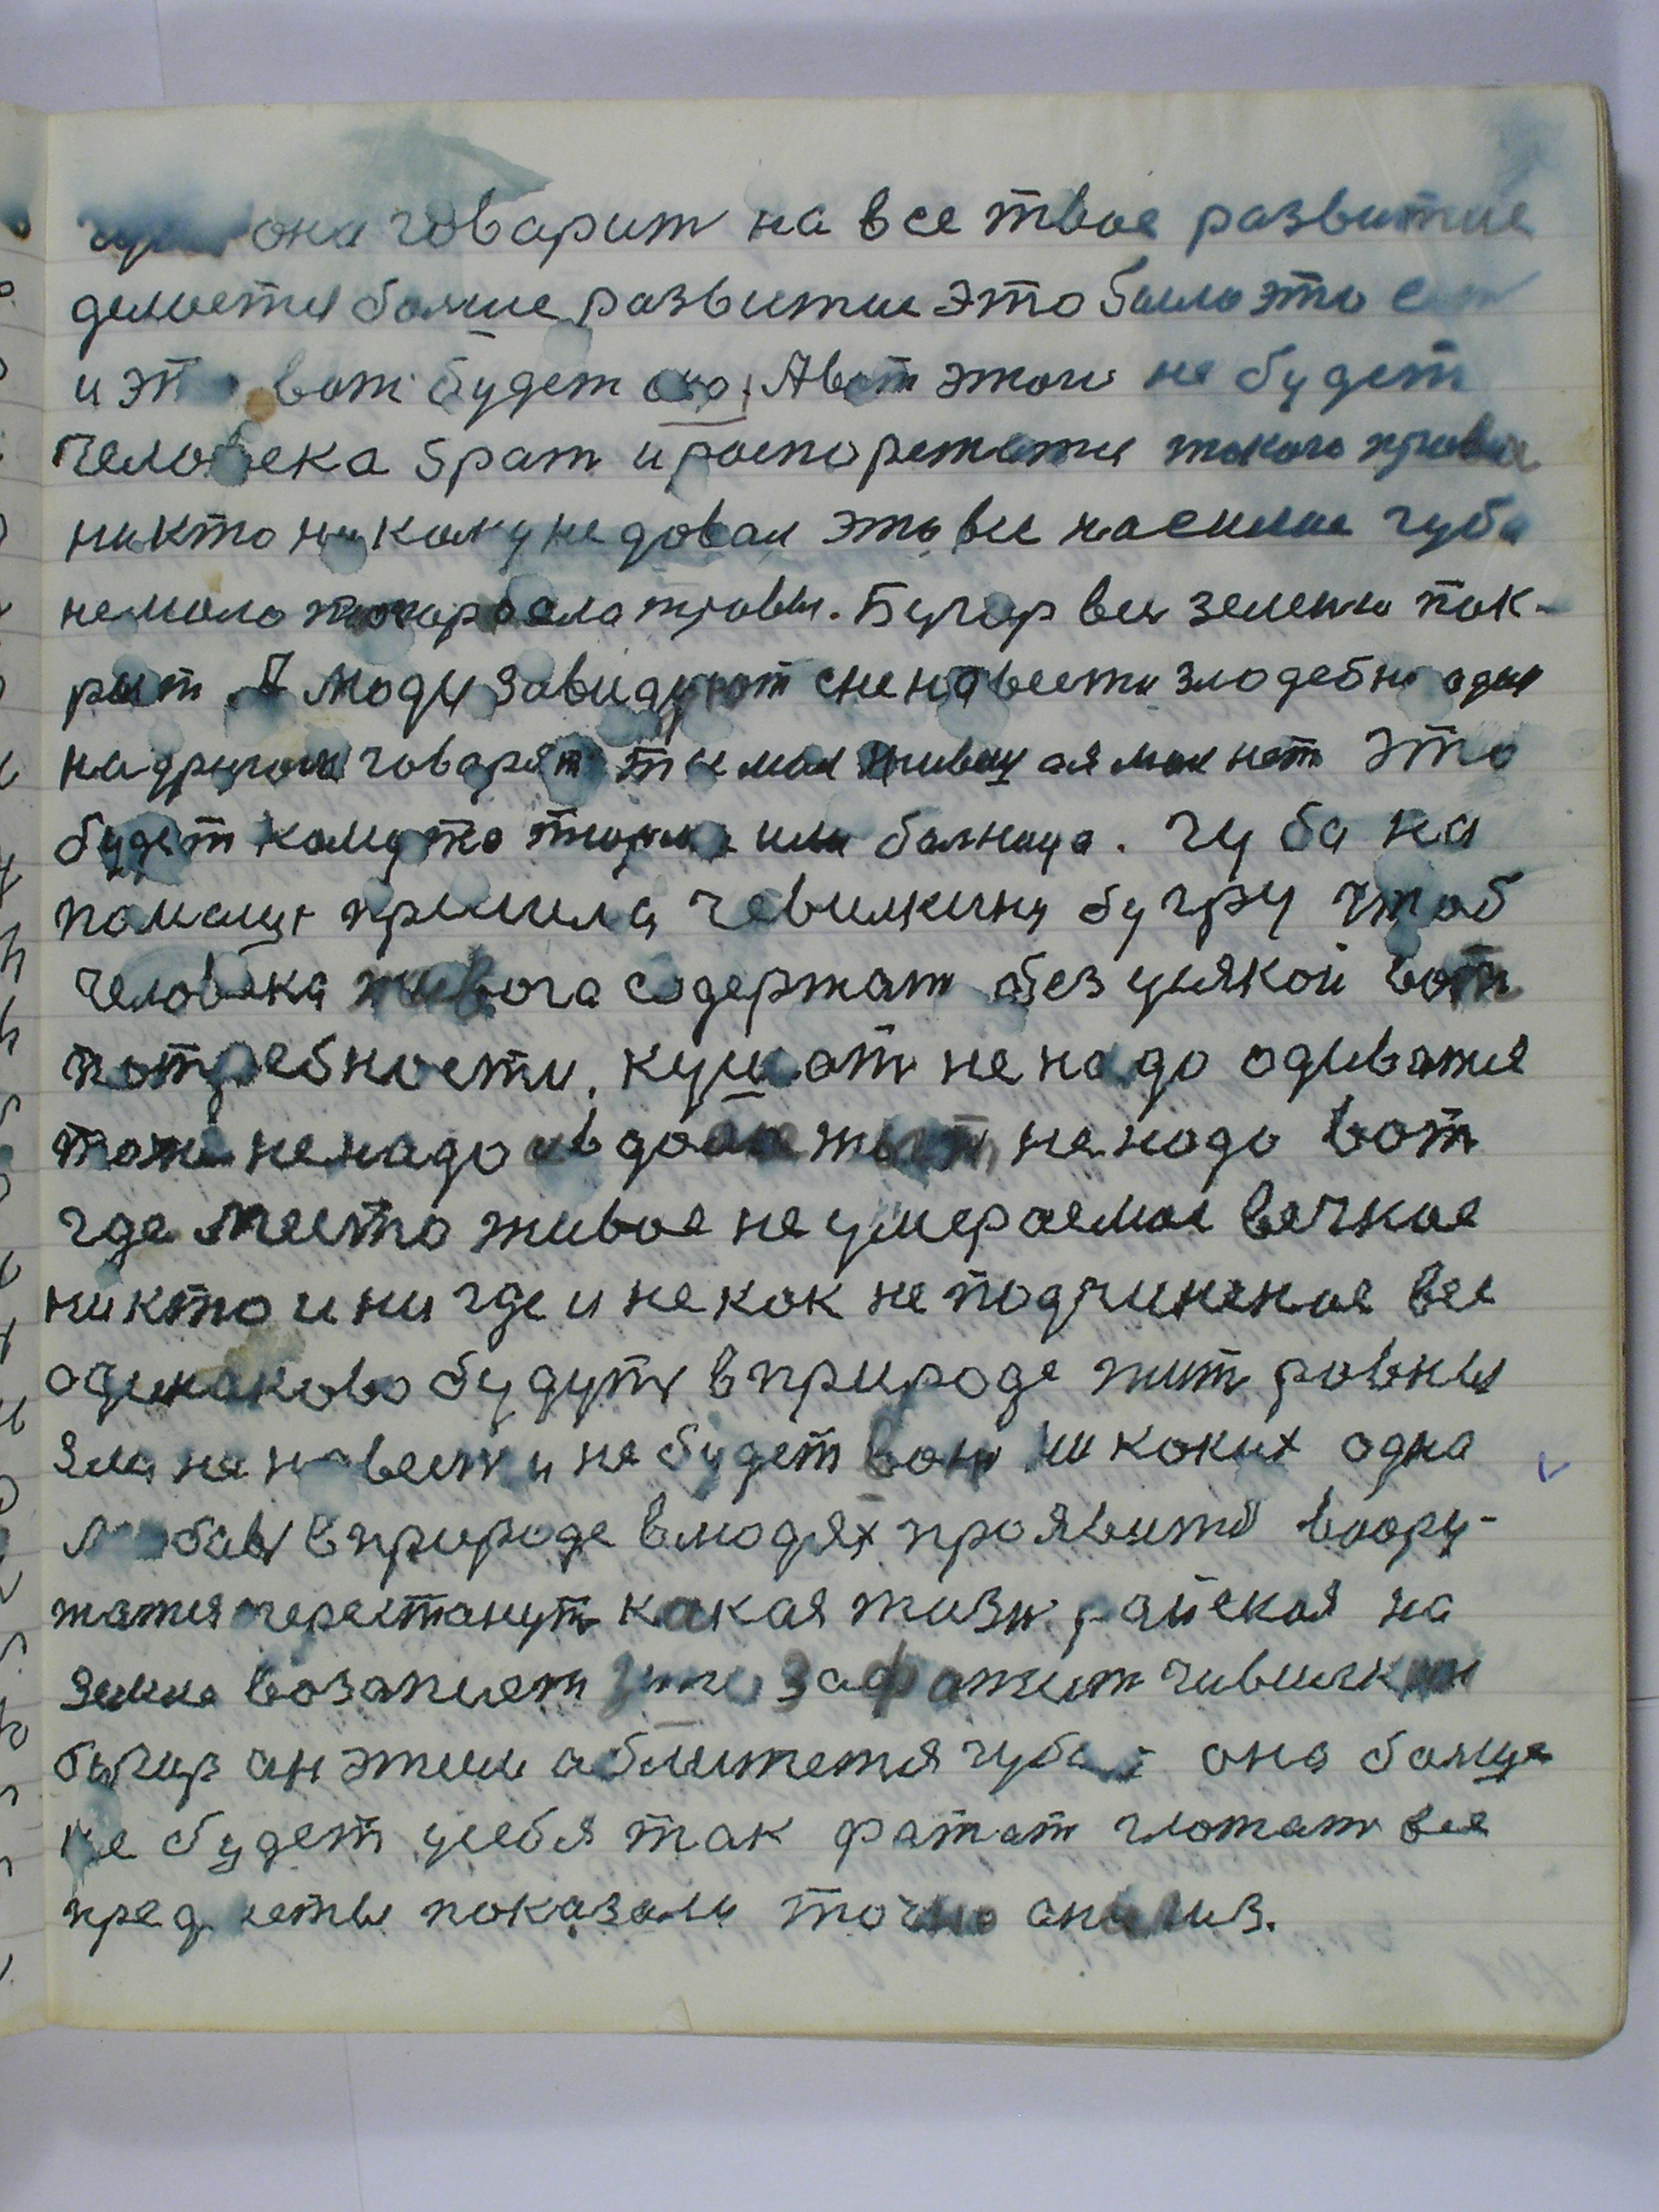 она говарит на все твое развитие
делается болше развитие это было это ест
и это вот будет оно. А вот этого не будет
человека брат и роспорежатся такого права
никто никому не довал это все насилие чуба
не мало погарбела травы. Бугор вес зеленю пок-
рыт. Люди завидуют с ненавести злодебно один
на другога говарят ты мая живеш а я мая нет это
будет кому то тюрма или болница. Чуба на
помащ пришла Чевилкину бугру чтоб
человека живога содержат без усякой вот
потребности. кушат не надо одиватся
тоже не надо и в доме жыт не нодо вот
где место живое не умераемое вечное
никто и ни где и некок не подчиненое все
одинаково будут в природе жит ровныя
зла не новести не будет вот ни коких одна
любов в природе в людях проявитс воору-
жатся перестанут какая жизн райская на
земле возапиет Чивилкин
бугир ан этим аближется чуба: она болще
не будет у себя так фатат глотат все
предметы показали точно анализ.